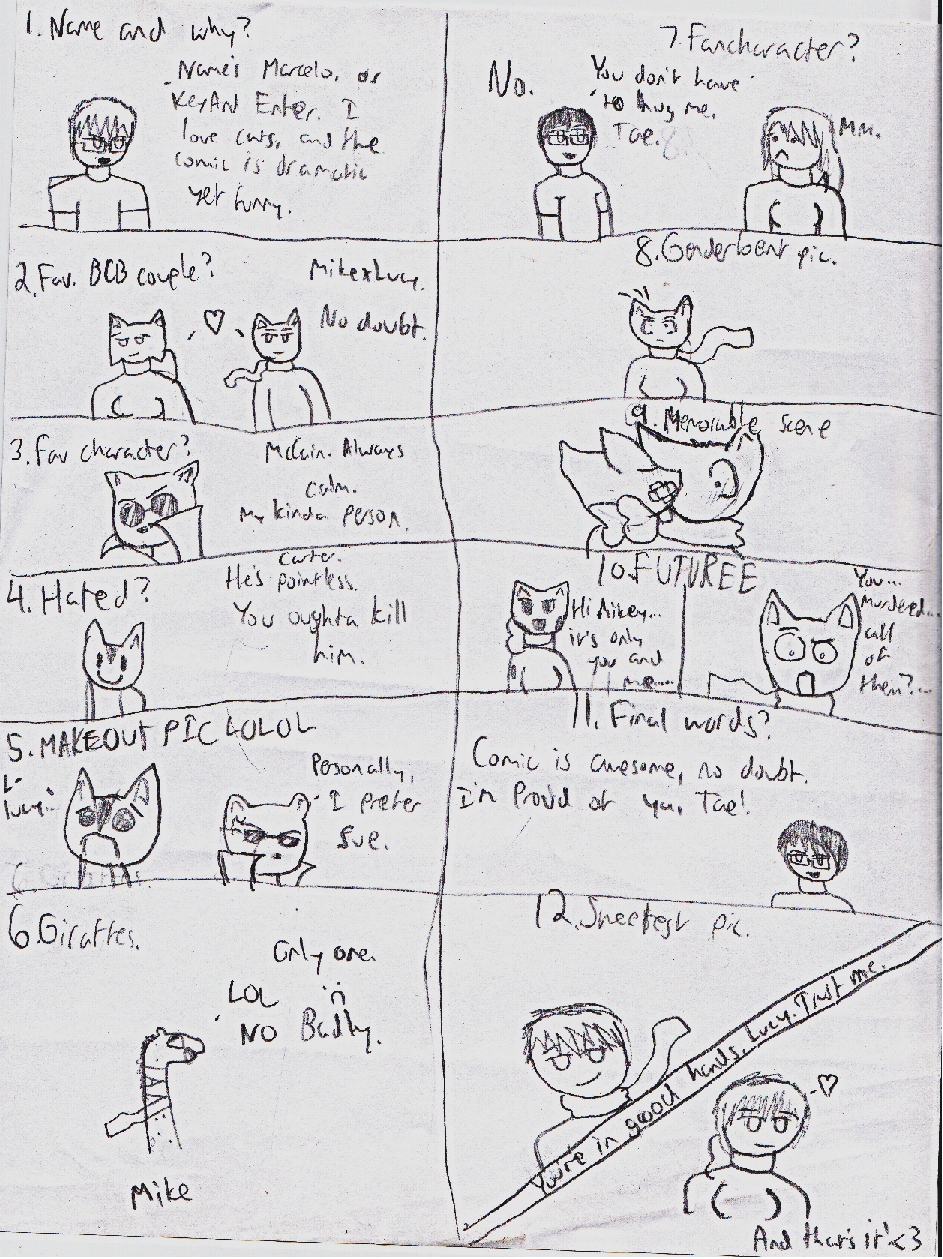 1. Name and why?
Name's Marcelo, or
KeyAnd Enter. I
love cats, and the
comic is dramatic
yet funny.
2. Fav. BCB couple?
MikexLucy.
No doubt.
3. Fav character?
McCain. Always
calm.
My kinda person.
4. Hated?
Carter.
He's pointless.
You oughta kill
him.
5. MAKEOUT PIC LOLOL
L-
Lucy..
Pesonally,
I prefer
Sue.
6. Giraffes.
Only one.
LOL
NO Badly.
Mike
7. Fancharacter?
No.
You don't have
to hug me,
Tae.
Mm.
8. Genderbent pic.
9. Memorable scene
10. FUTUREE
Hi Mikey...
it's only
you and
me...
You...
Murdered...
all
of
them?...
11. Final words?
Comic is awesome, no doubt.
I'm Proud of you, Tae!
12. Sweetest pic.
You're in good hands, Lucy. Trust me.
And that's it! <3